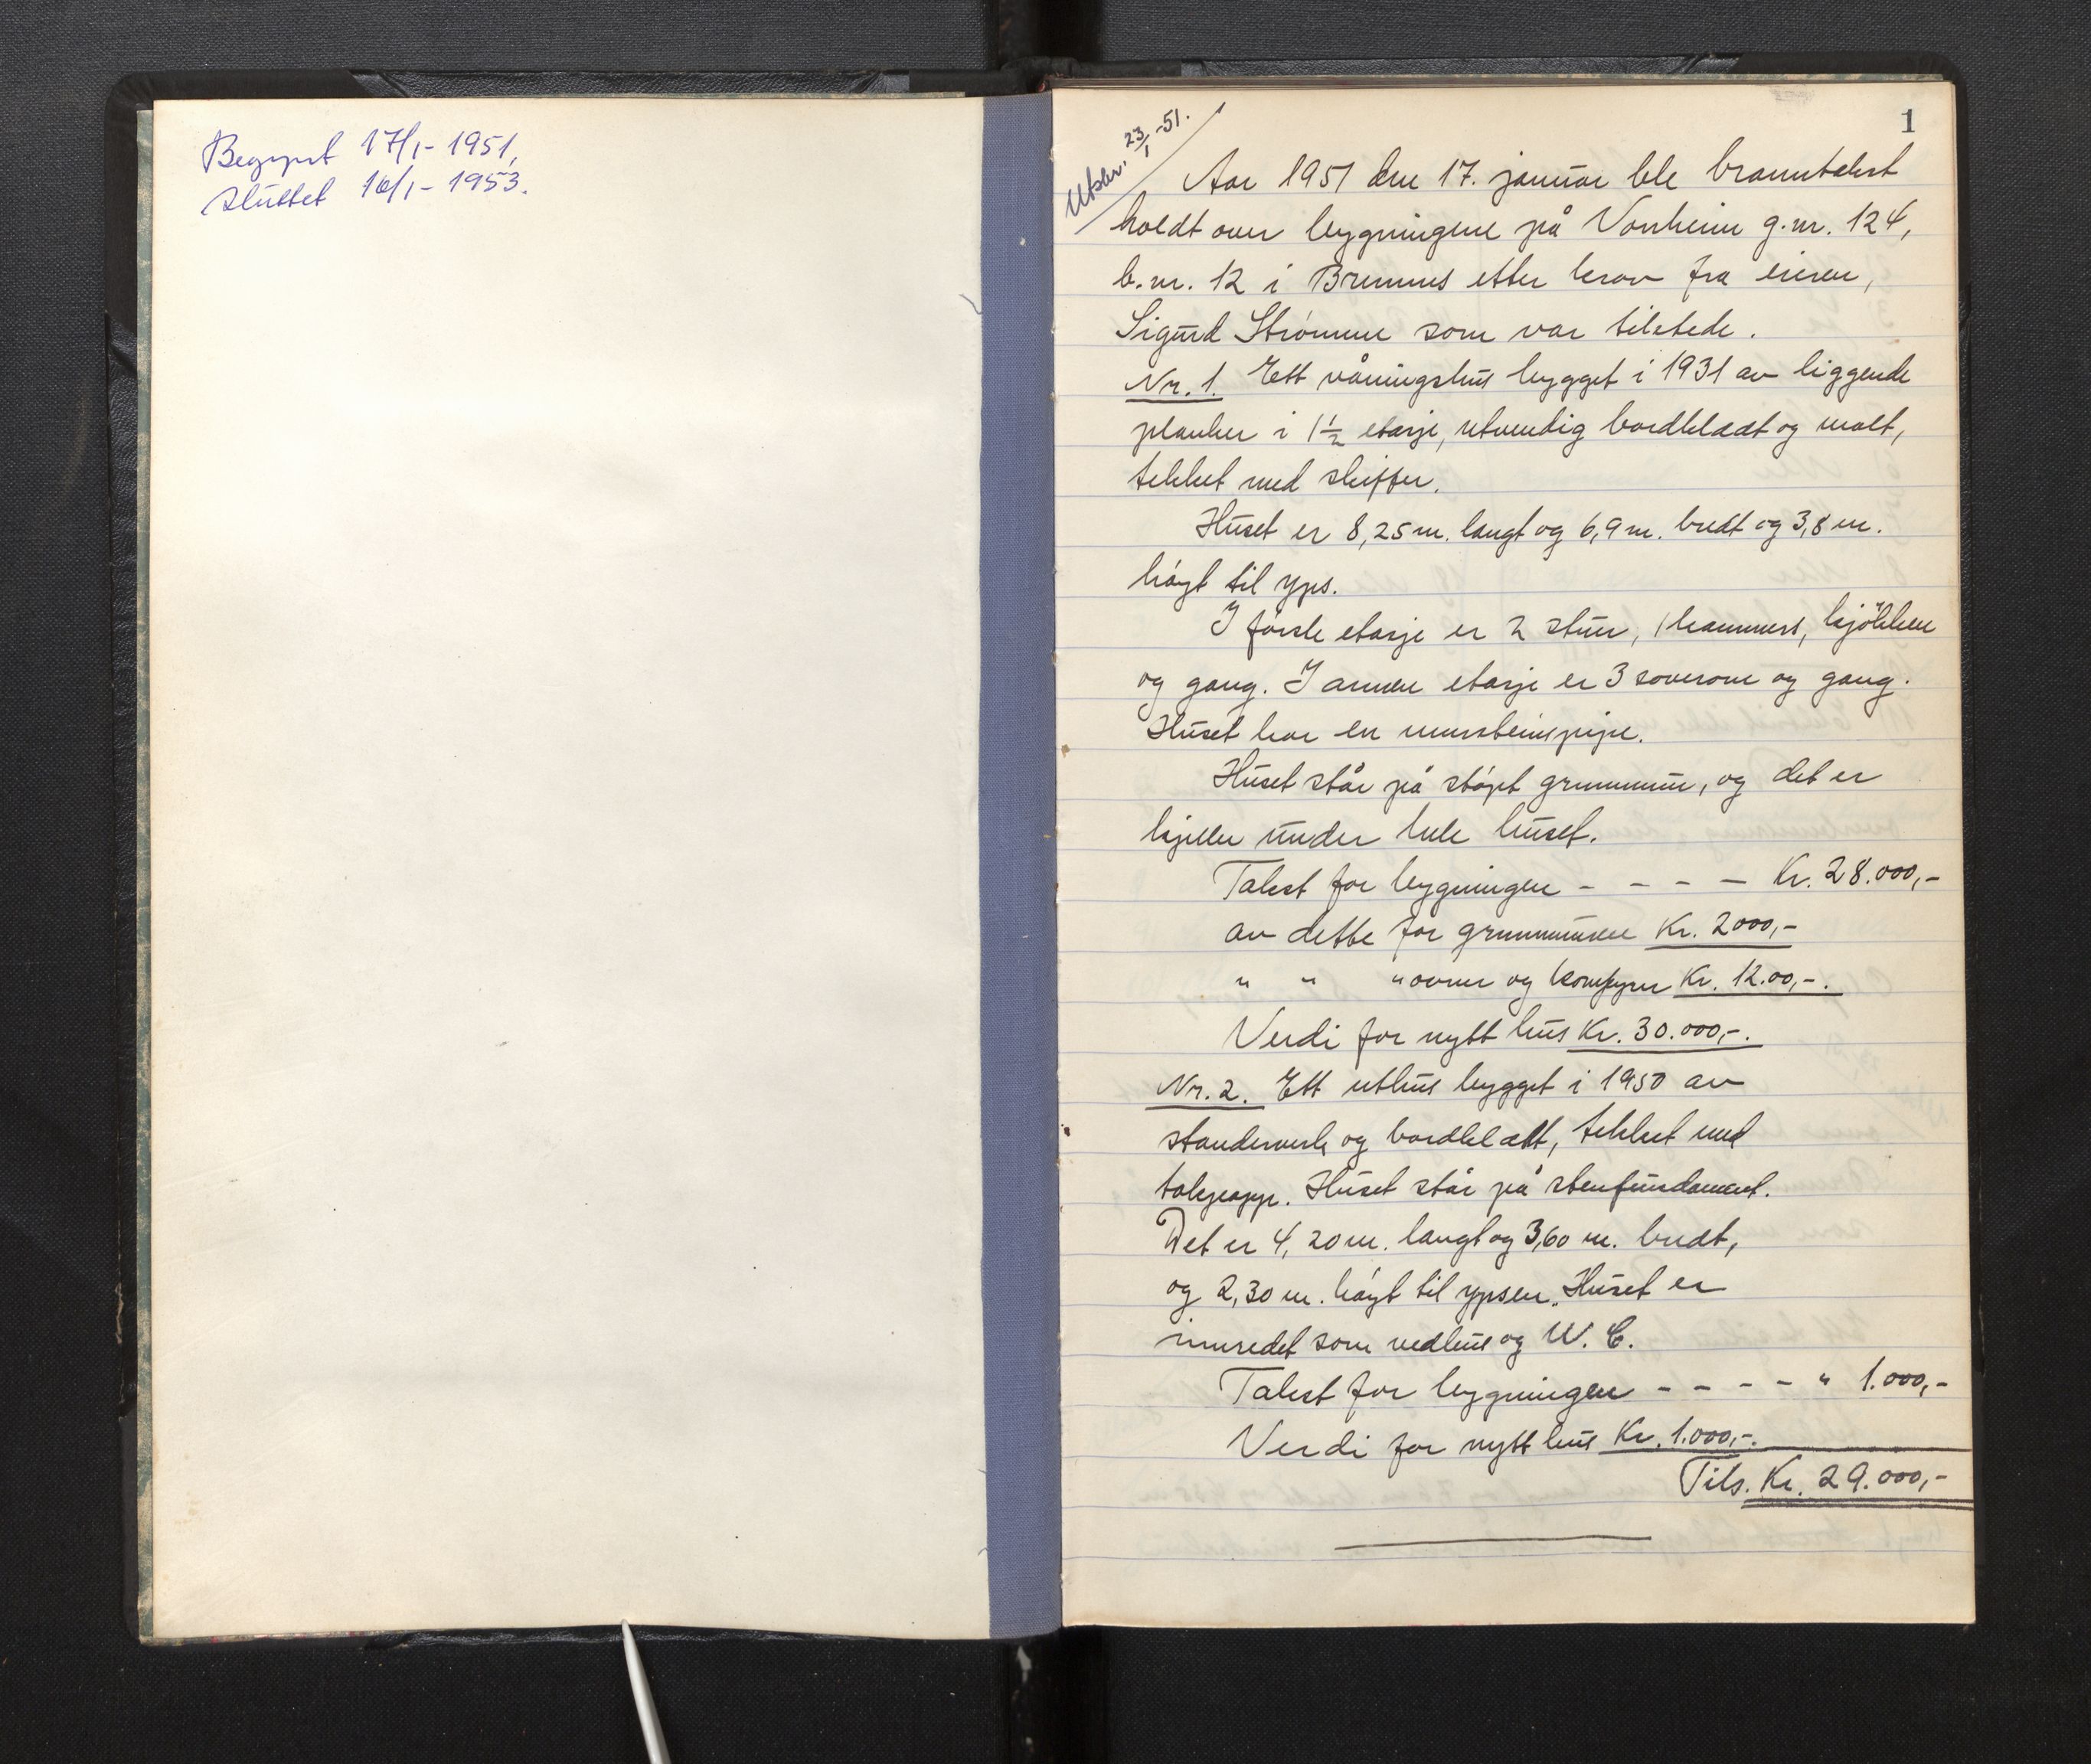 Begynt 17/1- 1951,
sluttet 16/1- 1953.
1
Utskr. 23/1-51.
Aar 1951 den 17. januar ble branntakst
holdt over bygningene på Vonheim g.nr. 124,
b.nr. 12 i Bremnes etter krav fra eieren,
Sigurd Strömme som var tilstede.
Nr. 1. Ett våningshus bygget i 1931 av liggende
planker i 1½ etasje, utvendig bordkledt og malt,
tekket med skiffer.
Huset er 8,25 m. langt og 6,9 m. bredt og 3,8 m.
höyt til yps.
I förste etasje er 2 stuer, 1 kammers, kjökken
og gang. I annen etasje er 3 soverom og gang.
Huset har en mursteinspipe.
Huset står på stöpt grunnmur, og det er
kjeller under hele huset.
Takst for bygningen - - - - Kr. 28.000,-
av dette for grunnmuren Kr. 2000,-
" " " ovner og komfyrer Kr. 12.00,-.
Verdi for nytt hus Kr. 30.000,-.
Nr. 2. Ett uthus bygget i 1950 av
standerverk og bordklætt, tekket med
takpapp. Huset står på stenfundament.
Det er 4,20 m. langt og 3,60 m. bredt,
og 2,30 m. höyt til ypsen. Huset er
innredet som vedhus og W. C.
Takst for bygningen - - - - " 1.000,-
Verdi for nytt hus Kr. 1.000,-.
Tils. Kr. 29.000,-